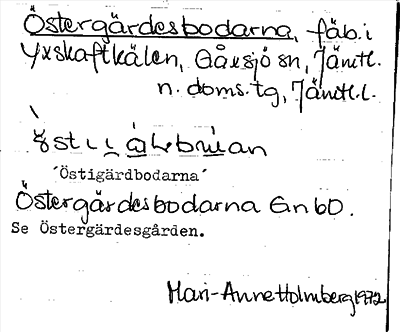 Östergärdesbodarna, fäb. i
Yxskaftkälen, Gåxsjö sn, Jämtl.
n. doms. tg, Jämtl. l.
´Östigärdbodarna´
Östergärdesbodarna GnbD.
Se Östergärdesgården.
Mari-Anne Holmberg 1972